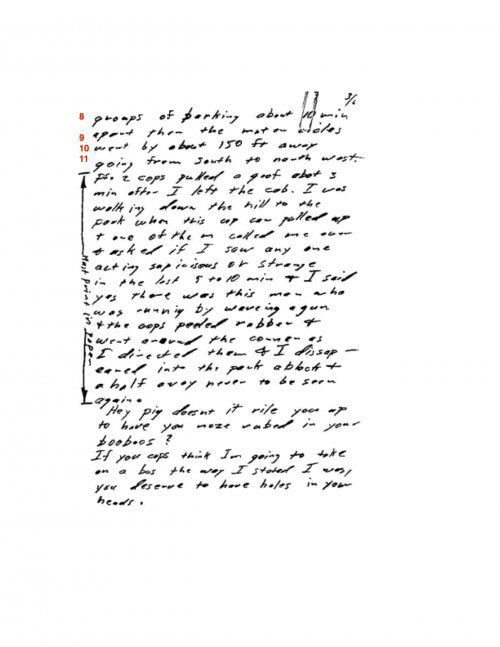 3/6
8 groops of barking about 10 min
9 apart then the motor cicles
10 went by about 150 ft away
11 going from south to north west.
ps. 2 cops pulled a goof abot 3
min after I left the cab. I was
walking down the hill to the
park when this cop car pulled up
+ one of them called me over
+ asked if I saw any one
acting sapicisous or strange
in the last 5 to 10 min + I said
yes there was this man who
was runnig by waveing a gun
+ the cops peeled rubber +
went around the corner as
I directed them + I dissap -
eared into the park a block +
a half away never to be seen
again.
Must print in paper
Hey pig doesnt it rile you up
to have you noze rubed in your
booboos ?
If you cops think Im going to take
on a bus the way I stated I was,
you deserve to have holes in your
heads.